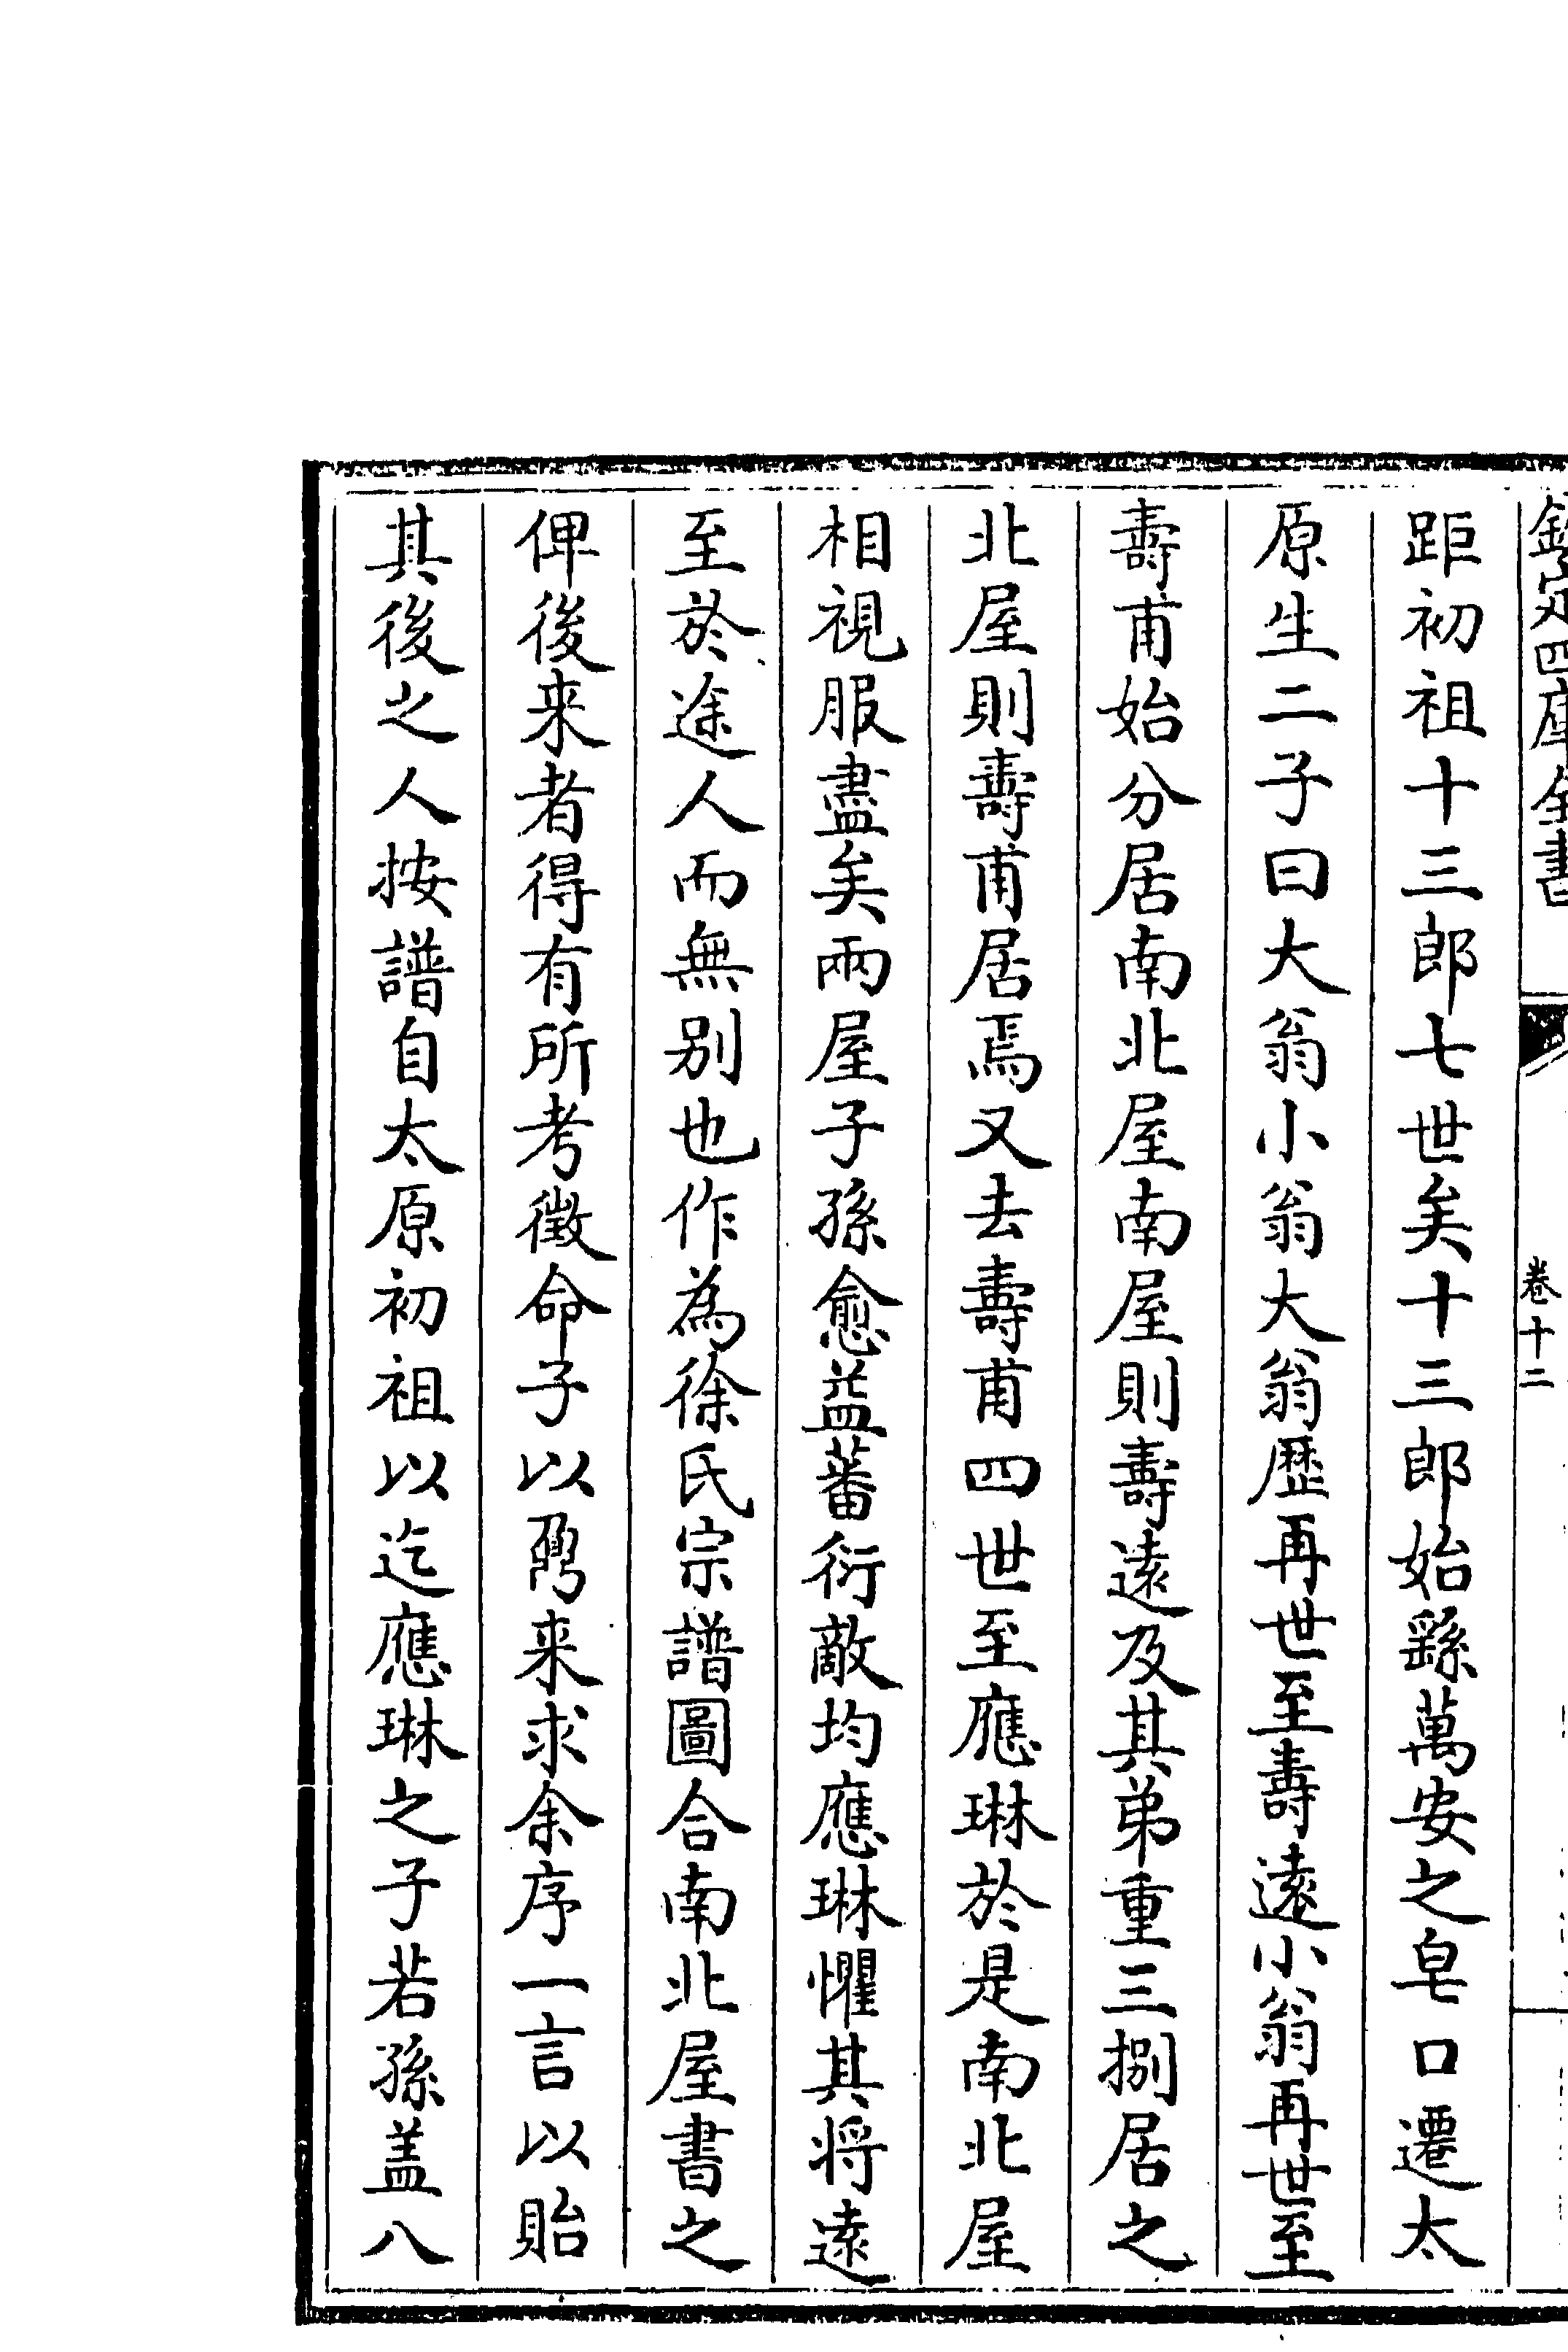 欽定四庫全書
卷十二
距初祖十三郎七世矣十三郎始繇萬安之皂口遷太
原生二子曰大翁小翁大翁歷再世至壽遠小翁再世至
壽甫始分居南北屋南屋則壽遠及其弟重三捌居之
北屋則壽甫居焉又去壽甫四世至應琳於是南北屋
相視服盡矣兩屋子孫愈益蕃衍敵均應琳懼其将遠
至於途人而無别也作為徐氏宗譜圖合南北屋書之
俾後来者得有所考徵命子以鼐来求余序一言以貽
其後之人按譜自太原初祖以迄應琳之子若孫盖八